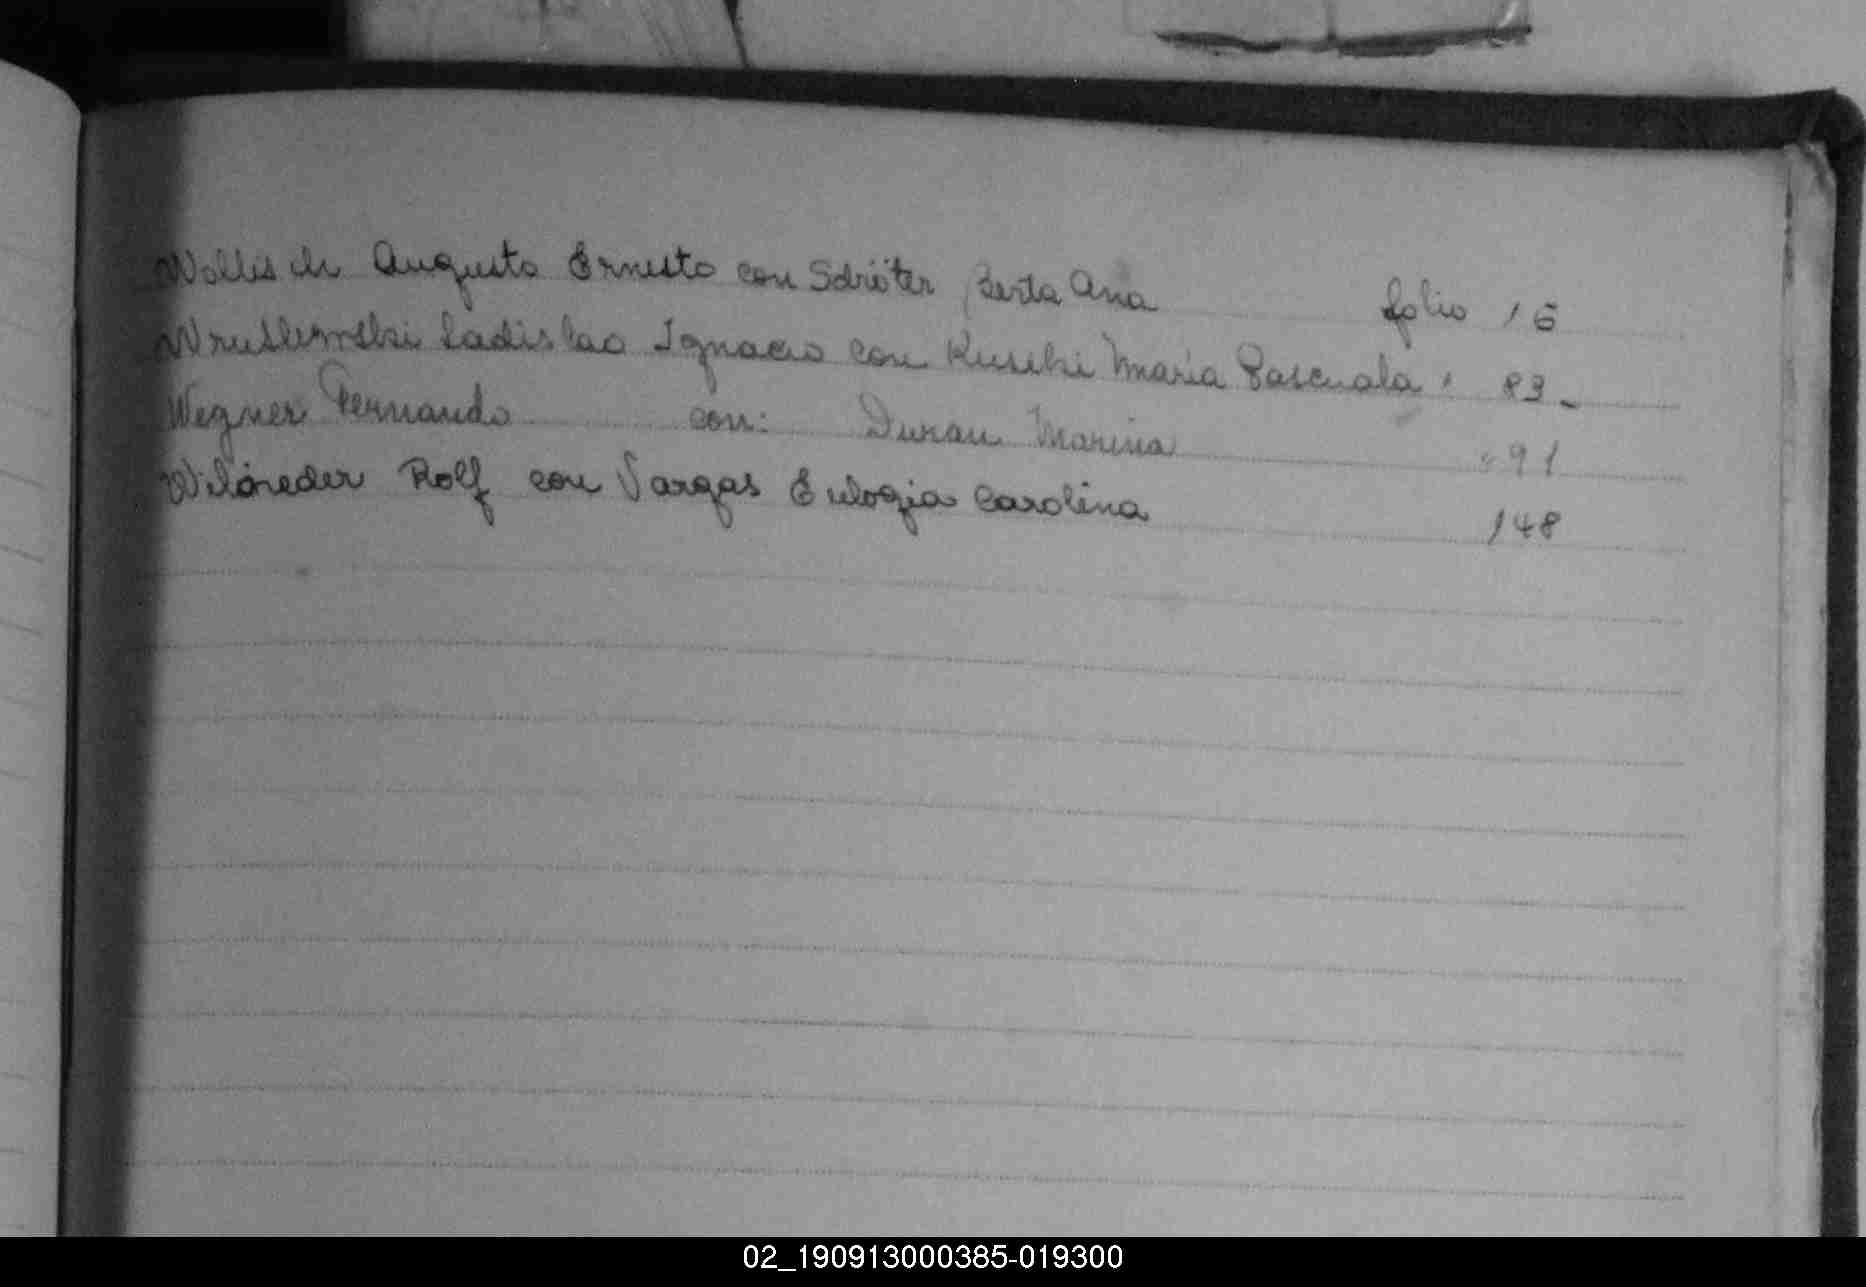 Wollisch Augusto Ernesto con Sdröter Berta Ana folio 16
Ladislao Ignacio con Maria Pascuala " 83_
Wegner Fernando con: Duran Marina " 91
Rolf con Vargas Eulogia Carolina 148
02_190913000385-019300